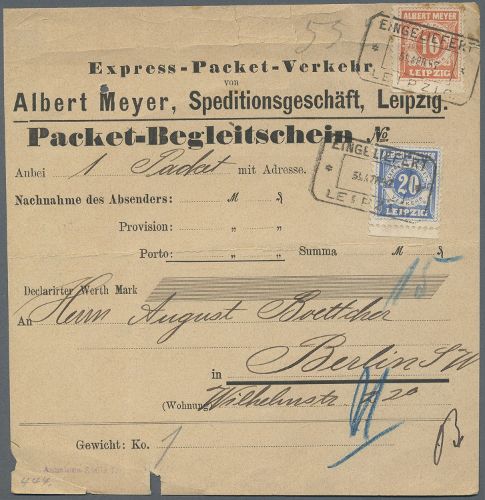 55
ALBERT MEYER
10
LEIPZIG
EINGELIEFERT
LEIPZIG
Express-Packet-Verkehr
von
Albert Meyer, Speditionsgeschäft, Leipzig.
Packet-Begleitschein No
EINGELIEFERT
LEIPZIG
20
LEIPZIG
Anbei 1 Packet mit Adresse.
Nachnahme des Absenders: M ₰
Provision: " "
Porto: " " Summa M ₰
Declarirter Werth Mark
15
An Herrn August Boettcher
in Berlin SW
(Wohnung) Wilhelmstr 20
Gewicht: Ko. 1
444.